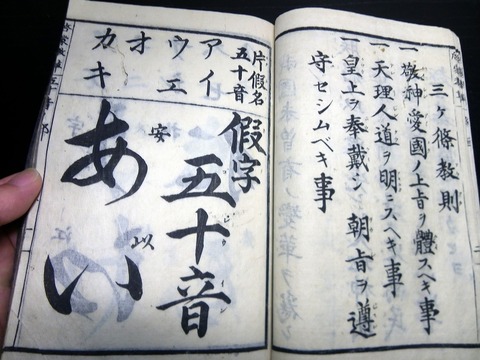 三ケ條教則
一 敬神愛國ノ上旨ヲ體スヘキ事
一 天理人道ヲ明ニスヘキ事
一 皇上ヲ奉戴シ朝旨ヲ遵
守セシムベキ事
片假名
五十音
アイ
ウエ
オ
カキ
假字
五十音
あ 安
い 以